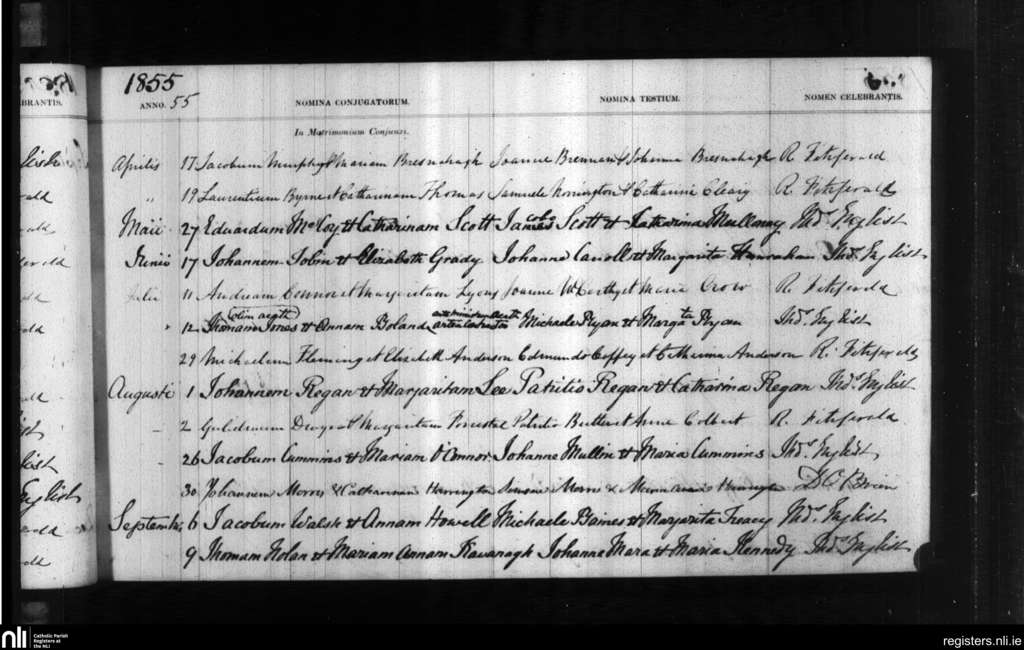 1855
BRANTIS. ANNO. 55 NOMINA CONJUGATORUM. NOMINA TESTIUM. NOMEN CELEBRANTIS.
In Matrimonium Conjunxi.
Aprilis 17 Jacobum Murphy et Mariam Bresnahagh Joanne Brennan & Johanna Bresnahagh R. Fitzgerald
" 19 Laurentium Byrne et Catharinam Thomas Samuele Norrington et Catharine Cleary R. Fitzgerald
Maii 27 Eduardum McCoy et Catharinam Scott Jacobo Scott et Catharina Mullanny Thos. English
Junii 17 Johannem Tobin et Elizabeth Grady Johanne Carroll et Margarita Hanrahan Thos. English
Julii 11 Andream Connor et Margaritam Lyons Joanne McCarthy et Maria Crow R. Fitzgerald
" 12 Thomam Jones et Annam Boland Michaele Ryan et Margta Ryan Thos. English
29 Michaelem Fleming et Elizabeth Anderson Edmundo Coffey et Catharina Anderson R. Fitzgerald
Augusti 1 Johannem Regan et Margaritam Lee Patritio Regan et Catharina Regan Thos. English
2 Gulielmum et Margaritam Patritio Butler et Anne Colbert R. Fitzgerald
26 Jacobum Cummins et Mariam O'Connor Johanne Mullin et Maria Cummins Thos. English
30 Johannem Morris & Catharinam Harrington Morris & O'Brien
Septembris 6 Jacobum Walsh et Annam Howell Michaele Baines et Margarita Treacy Thos. English
9 Thomam Nolan et Mariam Annam Kavanagh Johanne Mara et Maria Kennedy Thos. English
nli Catholic Parish Registers at the NLI
registers.nli.ie